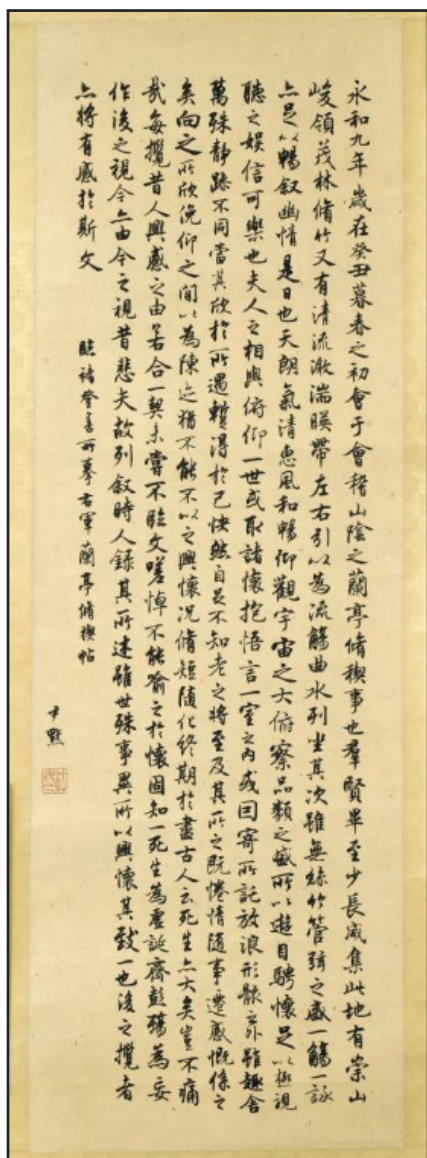 永和九年歲在癸丑暮春之初會于會稽山陰之蘭亭脩稧事也羣賢畢至少長咸集此地有崇山
峻領茂林脩竹又有清流激湍暎帶左右引以為流觴曲水列坐其次雖無絲竹管弦之盛一觴一詠
亦足以暢叙幽情是日也天朗氣清惠風和暢仰觀宇宙之大俯察品類之盛所以遊目騁懷足以極視
聽之娛信可樂也夫人之相與俯仰一世或取諸懷抱悟言一室之內或因寄所託放浪形骸之外雖趣舍
萬殊靜躁不同當其欣於所遇蹔得於己快然自足不知老之將至及其所之既惓情隨事遷感慨係之
矣向之所欣俛仰之間以為陳迹猶不能不以之興懷況脩短隨化終期於盡古人云死生亦大矣豈不痛
哉每攬昔人興感之由若合一契未嘗不臨文嗟悼不能喻之於懷固知一死生為虛誕齊彭殤為妄
作後之視今亦由今之視昔悲夫故列叙時人錄其所述雖世殊事異所以興懷其致一也後之攬者
亦將有感於斯文
臨褚登善所摹右軍蘭亭脩稧帖
尹默